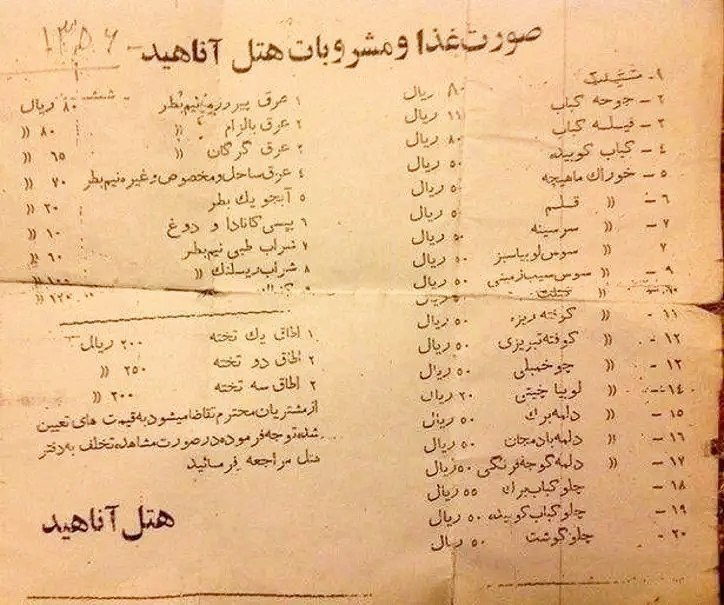 صورت غذا و مشروبات هتل آناهید
۱۳۵۶
۱-
۲- جوجه کباب ۸۰ ریال
۳- فیسله کباب ۱۱ ریال
۴- کباب کوبیده ۸۰ ریال
۵- خوراك ماهیچه ۵۰ ریال
۶- « قلم ۵۰ ریال
۷- « سرسینه ۵۰ ریال
۷ « سوس لوبیا سبز ۵۰ ریال
۹- « سوس سیب زمینی ۵۰ ریال
۱۰- « ۵۰ ریال
۱۱- « کوفته ریزه ۵۰ ریال
۱۲- « کوفته تبریزی ۵۰ ریال
۱۳- « ۵۰ ریال
۱۴- « لوبیا چیتی ۲۰ ریال
۱۵- « دلمه برك ۵۰ ریال
۱۶- « دلمه بادمجان ۵۰ ریال
۱۷- « دلمه گوجه فرنگی ۵۰ ریال
۱۸- چلو کباب برك ۵۵ ریال
۱۹- چلو کباب کوبیده ۵۰ ریال
۲۰- چلو گوشت ۵۰ ریال
۱ عرق نیم بطر ۸۰ ریال
۲ عرق بالزام « ۸۰ «
۳ عرق گرگان « ۶۵ «
۴ عرق ساحل و مخصوص و غیره نیم بطر ۷۰ «
۵ آبجو یك بطر ۳۰ «
۶ پپسی کانادا و دوغ ۱۰ «
۷ شراب طبی نیم بطر ۶۰ «
۸ شراب ریسلنك « ۱۰۰ «
۹ ۱۲۰ «
۱ اطاق یك تخته ۲۰۰ ریال
۲ اطاق دو تخته ۲۵۰ «
۳ اطاق سه تخته ۳۰۰ «
از مشتریان محترم تقاضا میشود به قیمت های تعیین
شده توجه فرموده در صورت مشاهده تخلف به دفتر
هتل مراجعه فرمائید
هتل آناهید